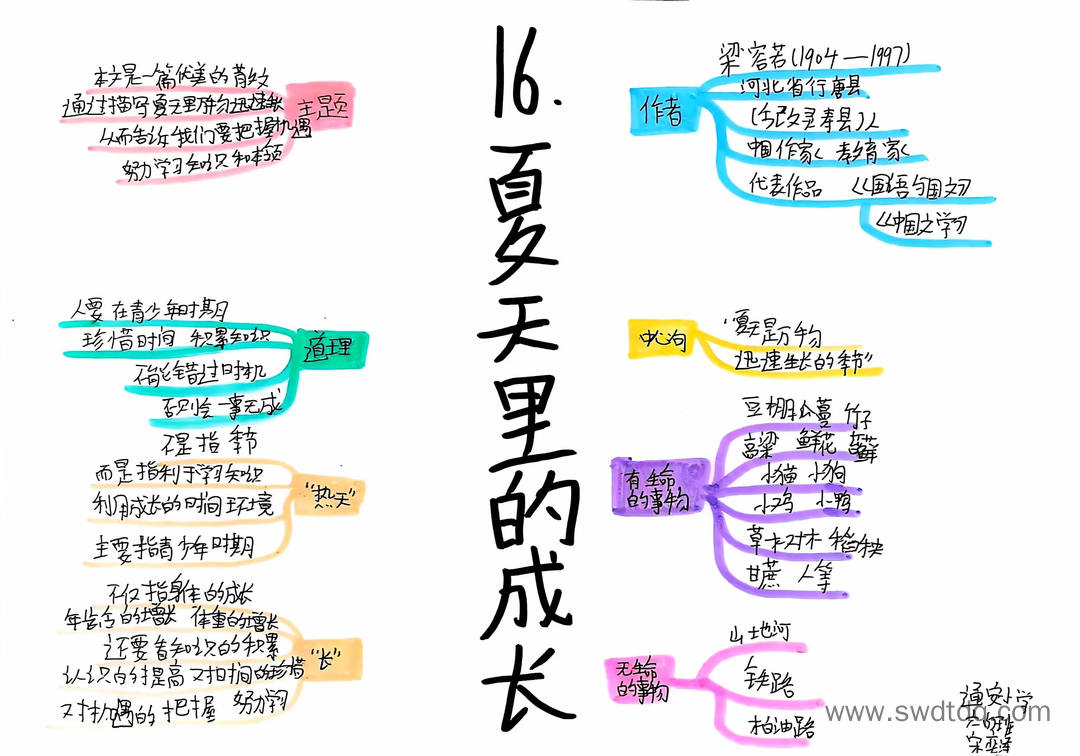 16.夏天里的成长
主题
本文是一篇优美的散文
通过描写夏天里万物迅速生长
从而告诉我们要把握机遇
努力学习知识和本领
道理
人要在青少年时期
珍惜时间 积累知识
不能错过时机
否则会一事无成
"热天"
不是指季节
而是指利于学习知识
利用成长的时间环境
主要指青少年时期
"长"
不仅指身体的成长
年龄的增长 体重的增长
还要看知识的积累
认识的提高 对时间的珍惜
对机遇的把握 努力学习
作者
梁容若(1904—1997)
河北省行唐县
(后改灵寿县)人
中国作家、教育家
代表作品 《国语与国文》
《中国文学》
中心句
"夏天是万物
迅速生长的季节"
有生命的事物
豆棚瓜蔓 竹子
高粱 鲜花 苔藓
小猫 小狗
小鸡 小鸭
草木 树木 稻秧
甘蔗 人等
无生命的事物
山地河
铁路
柏油路
www.swdtdq.com